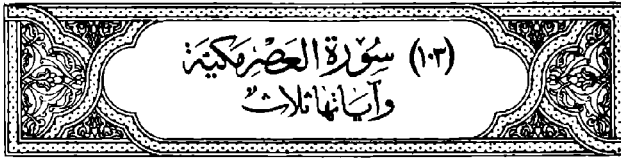 (١٠٣) سُورَةُ العَصْرِ مَكِيَّة
وَآيَاتُهَا ثَلَاثٌ